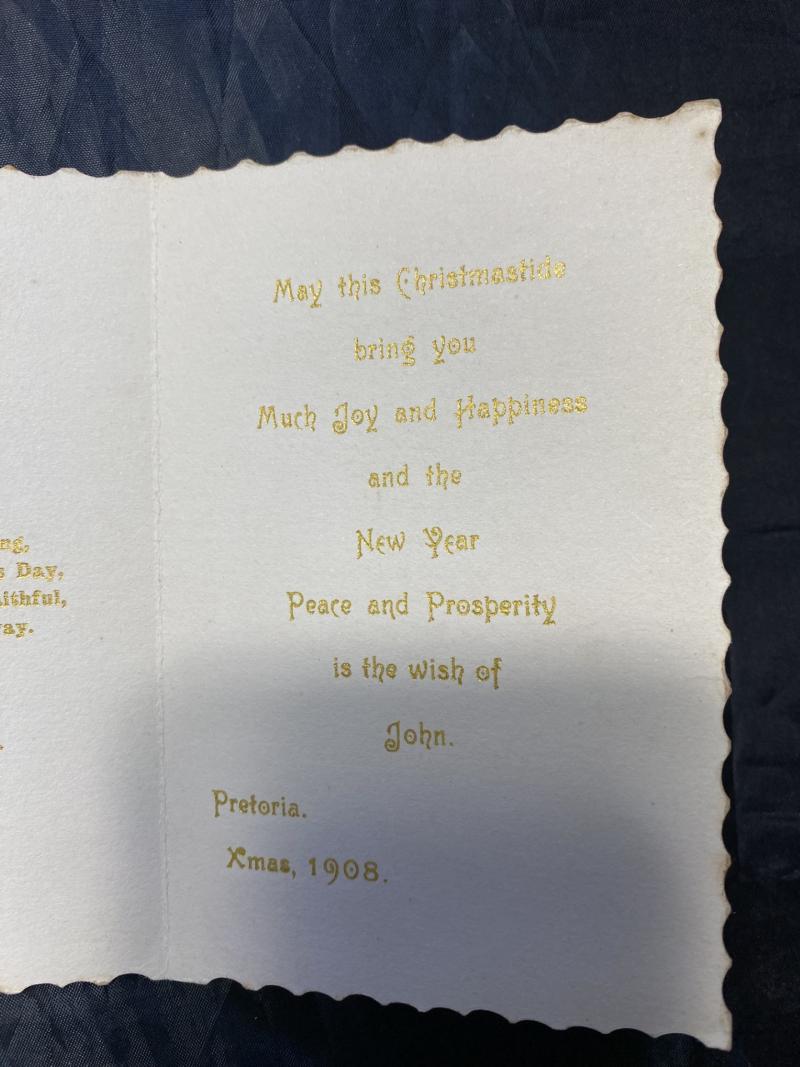 Day,
May this Christmastide
bring you
Much Joy and Happiness
and the
New Year
Peace and Prosperity
is the wish of
John.
Pretoria.
Xmas, 1908.